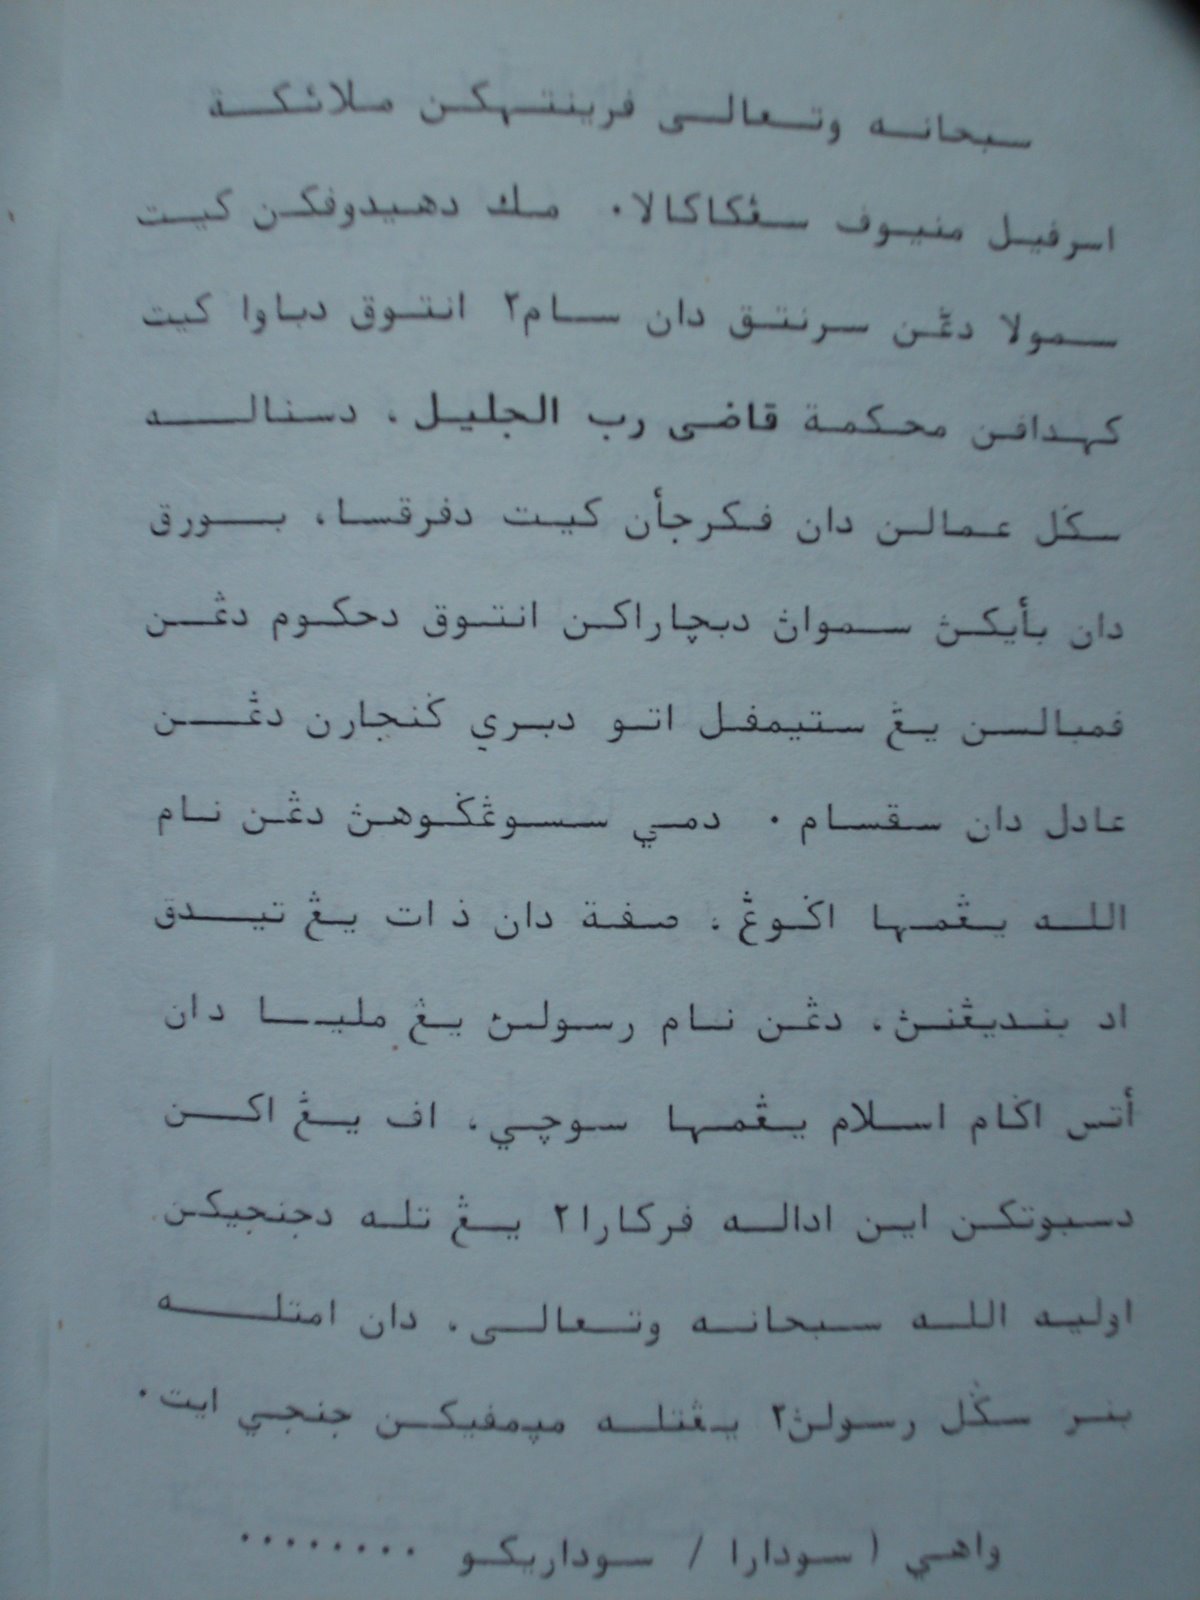 سبحانه وتعالى ڤرينتهكن ملائكة
اسرفيل منيوڤ سڠكاكالا. مك دهيدوڤكن كيت
سمولا دڠن سرنتق دان سام٢ انتوق دباوا كيت
كهدافن محكمة قاضى رب الجليل، دسنالـه
سݢل عمالن دان ڤكرجأن كيت دڤرقسا، بورق
دان بأيكڽ سمواڽ دبچاراكن انتوق دحكوم دڠن
ڤمبالسن يڠ ستيمڤل اتو دبري ݢنجارن دڠن
عادل دان سقسام. دمي سسوڠݢوهڽ دڠن نام
الله يڠمها اݢوڠ، صفة دان ذات يڠ تيدق
اد بنديڠنڽ، دڠن نام رسولڽ يڠ مليا دان
أتس اݢام اسلام يڠمها سوچي، اڤ يڠ اكن
دسبوتكن اين اداله ڤركارا٢ يڠ تله دجنجيكن
اوليه الله سبحانه وتعالى، دان امتله
بنر سݢل رسولڽ٢ يڠتله مڽمڤيكن جنجي ايت.
واهي ( سودارا / سوداريكو ........